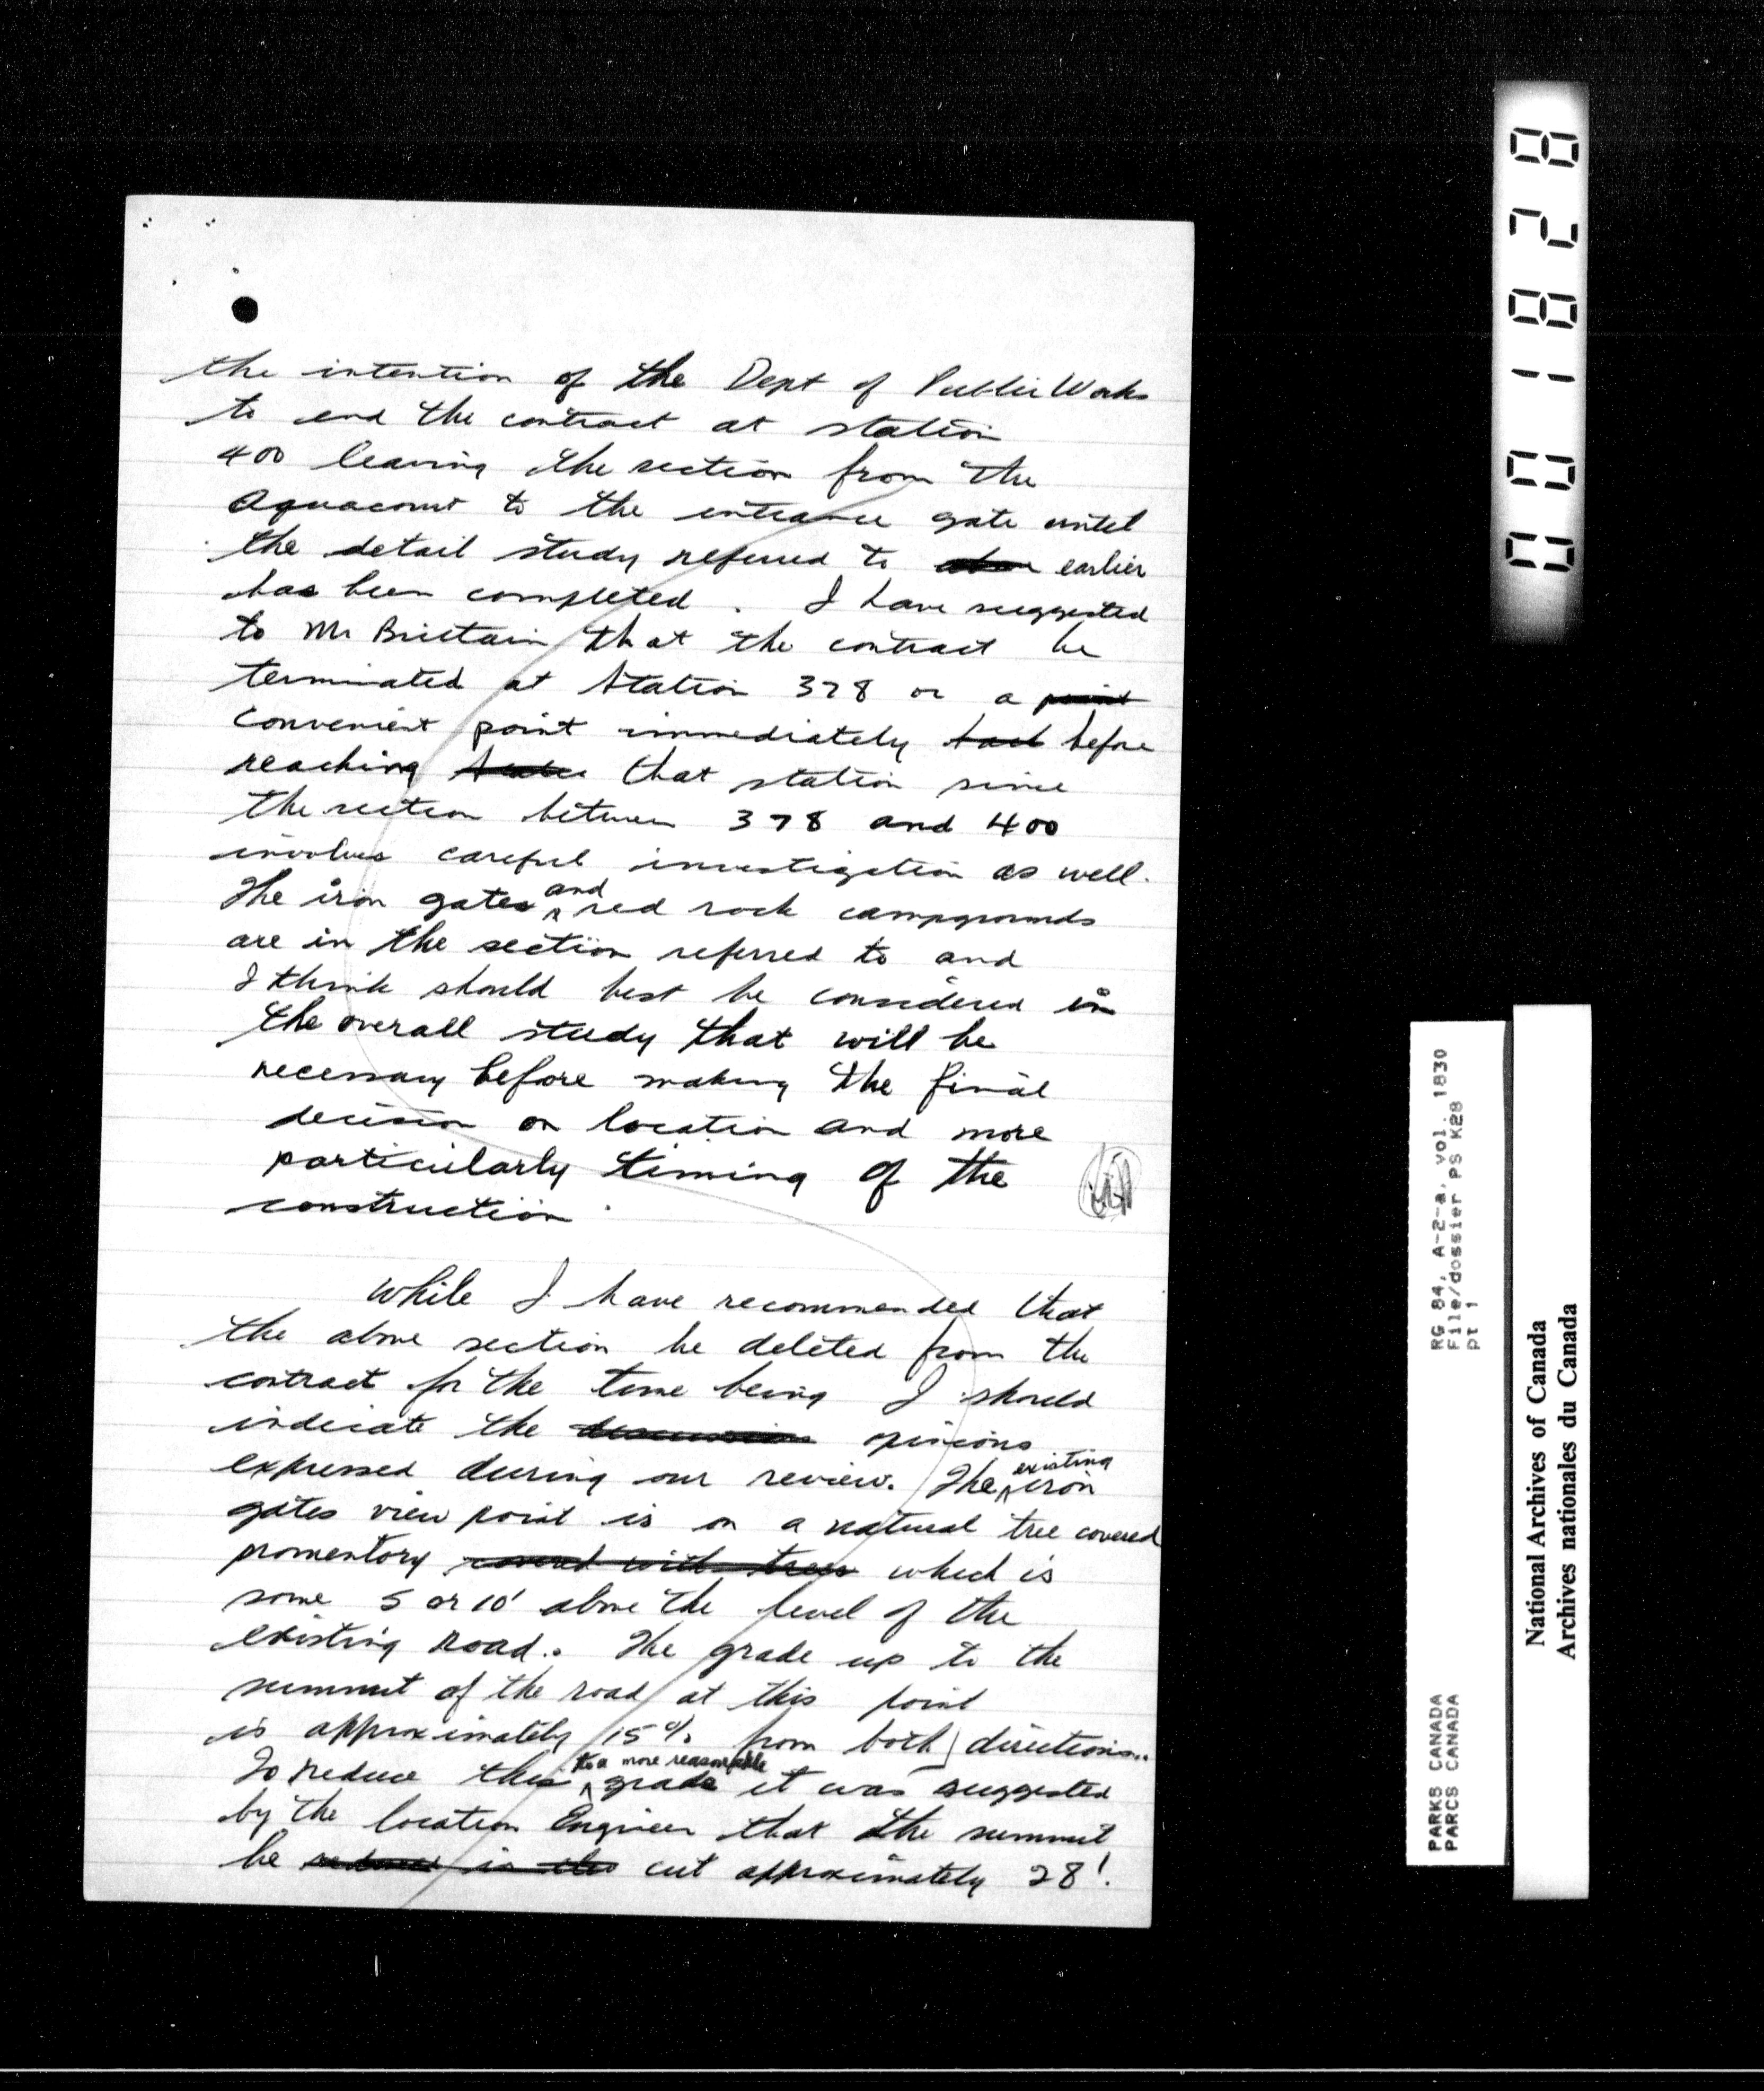 the intention of the Dept of Public Works
to end the contract at station
400 leaving the section from the
Aquacourt to the entrance gate until
the detail study referred to above earlier
has been completed. I have suggested
to Mr Brittain that the contract be
terminated at station 378 or a point
convenient point immediately before
reaching that station since
the section between 378 and 400
involves careful investigation as well.
The iron gates and red rock campgrounds
are in the section referred to and
I think should best be considered in
the overall study that will be
necessary before making the final
decision on location and more
particularly timing of the
construction.
While I have recommended that
the above section be deleted from the
contract for the time being I should
indicate the discussions opinions
expressed during our review. The existing iron
gates view point is on a natural tree covered
promentory covered with trees which is
some 5 or 10' above the level of the
existing road. The grade up to the
summit of the road at this point
is approximately 15% from both directions.
To reduce this to a more reasonable grade it was suggested
by the location Engineer that the summit
be cut approximately 28'.
001828
RG 84, A-2-a, vol. 1830
File/dossier PS K28
pt 1
PARKS CANADA
PARCS CANADA
National Archives of Canada
Archives nationales du Canada